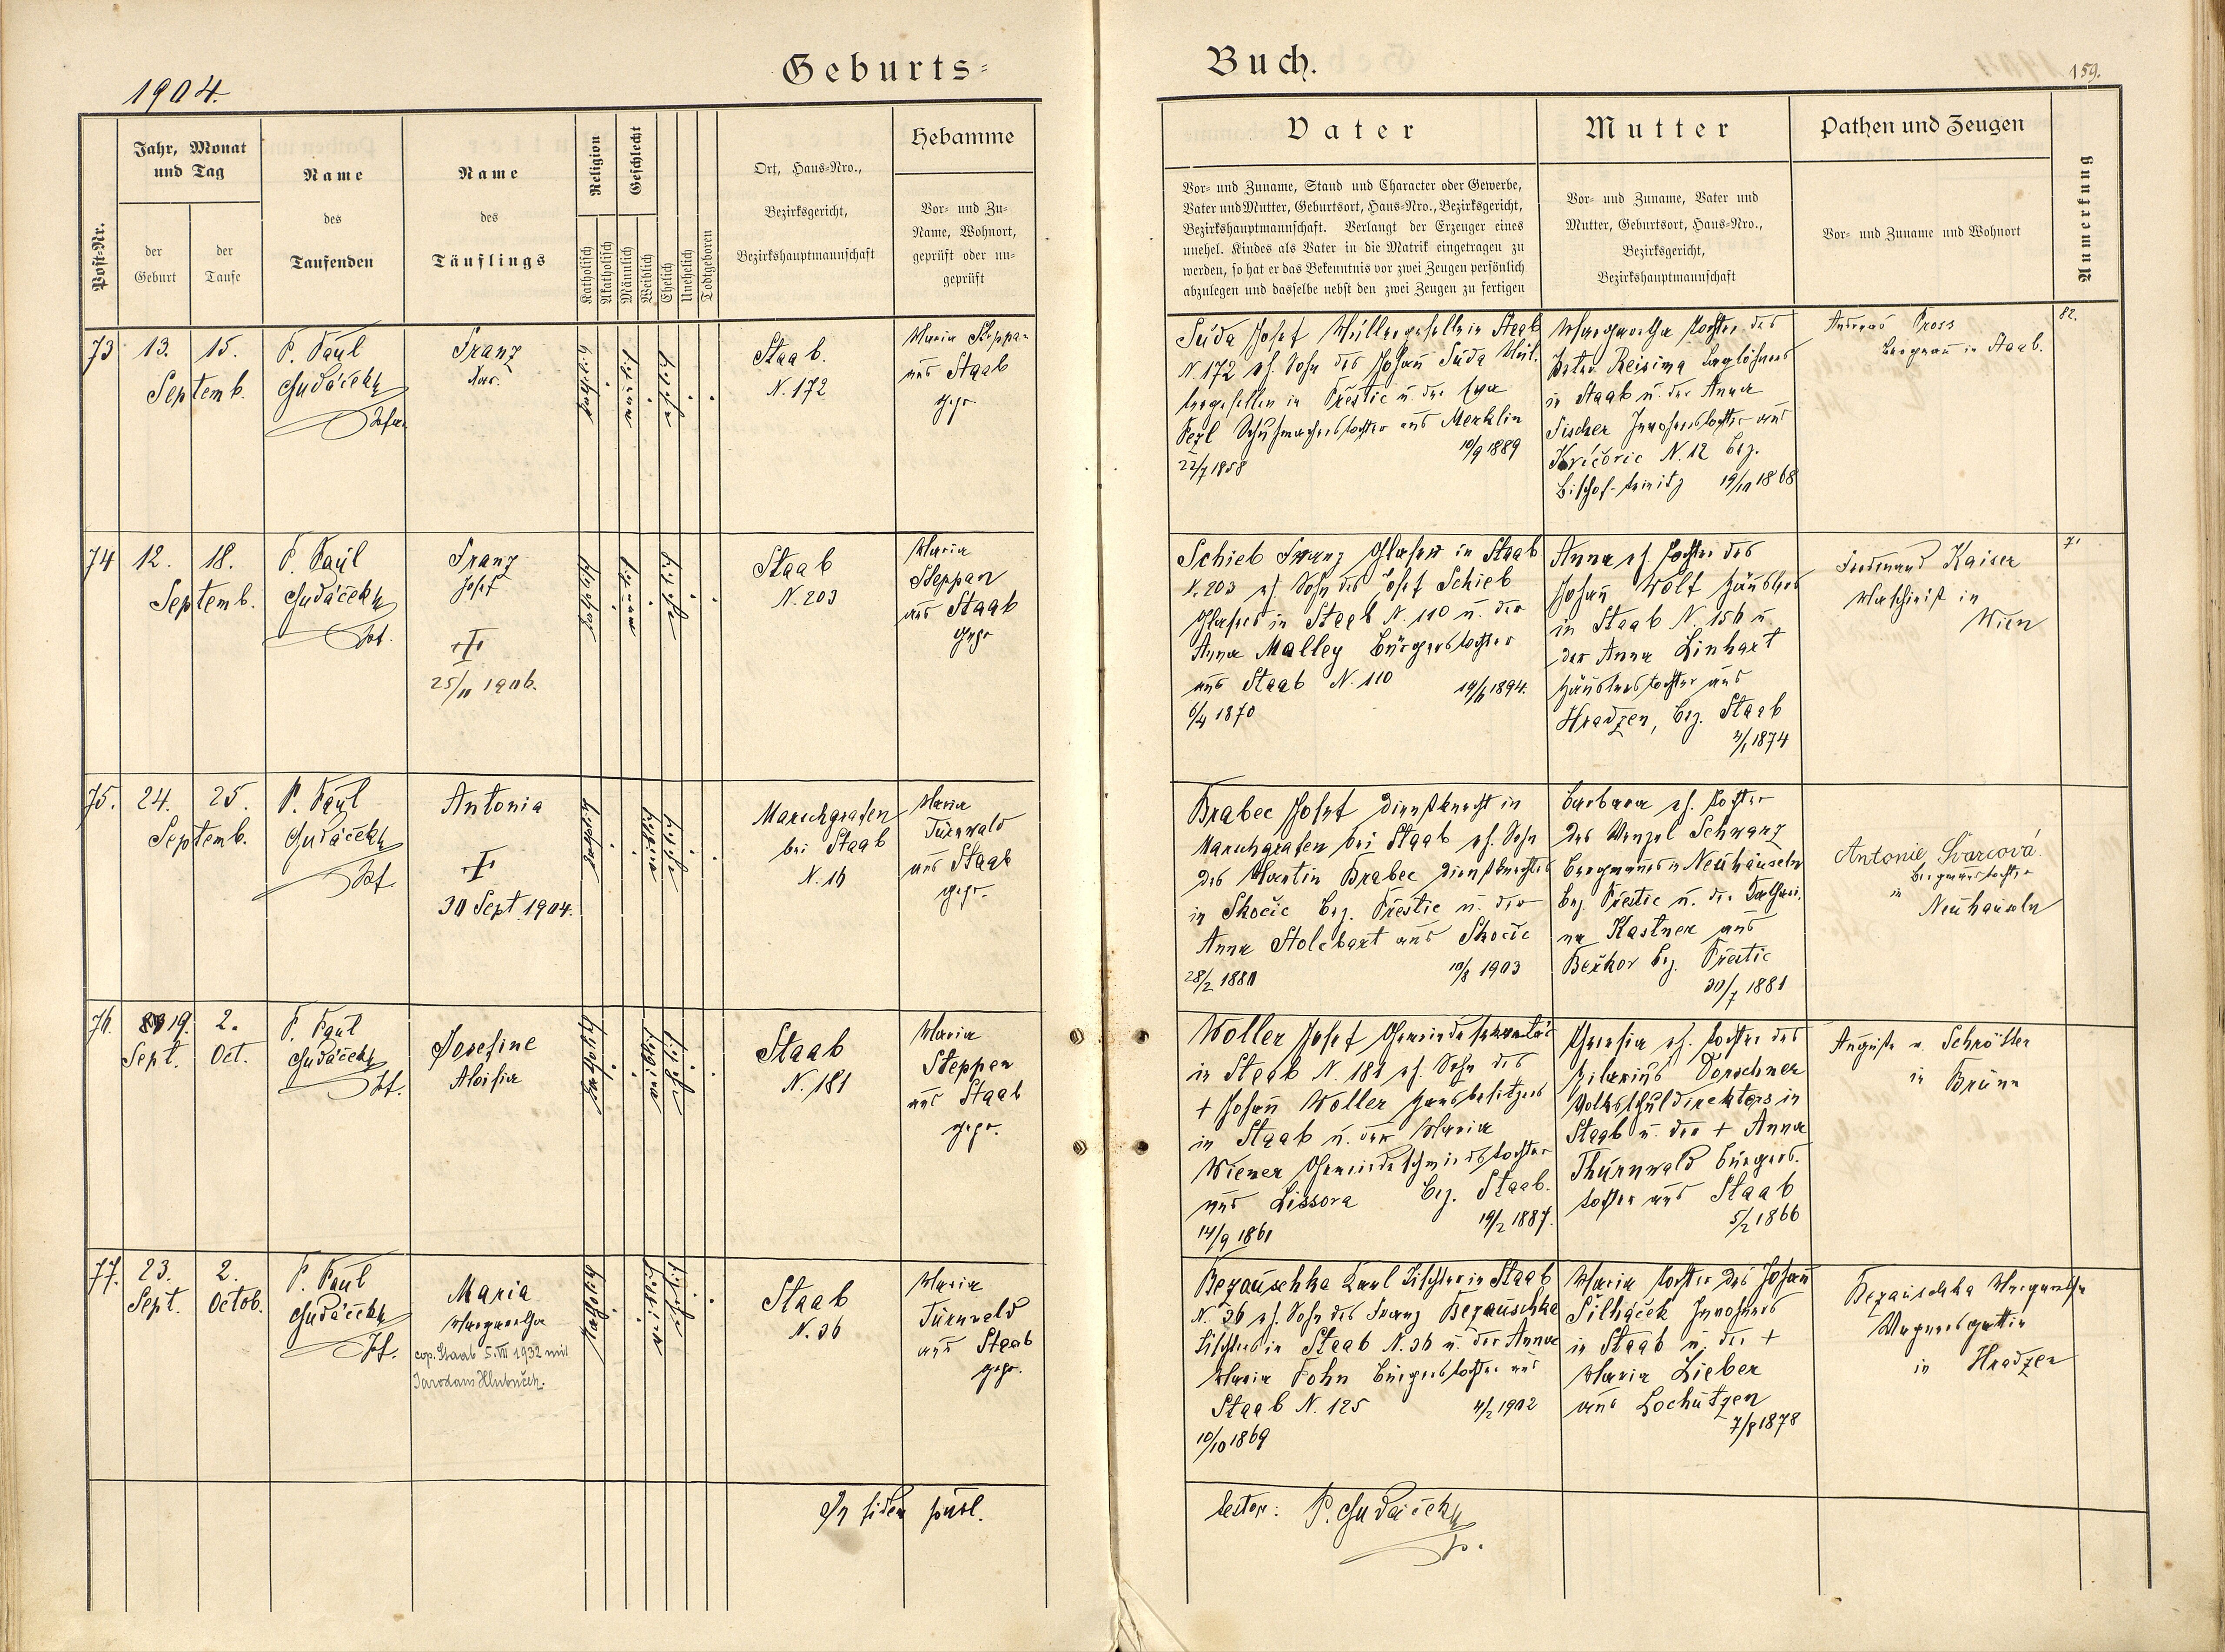 1904.
Geburts=
Buch.
159.
Post-Nr.
Jahr, Monat
und Tag
der
Geburt
der
Taufe
Name
des
Taufenden
Name
des
Täuflings
Religion
Katholisch
Akatholisch
Geschlecht
Männlich
Weiblich
Ehelich
Unehelich
Todtgeboren
Ort, Haus=Nro.,
Bezirksgericht,
Bezirkshauptmannschaft
Hebamme
Vor= und Zu=
Name, Wohnort,
geprüft oder un=
geprüft
Vater
Vor= und Zuname, Stand und Character oder Gewerbe,
Vater und Mutter, Geburtsort, Haus=Nro., Bezirksgericht,
Bezirkshauptmannschaft. Verlangt der Erzeuger eines
unehel. Kindes als Vater in die Matrik eingetragen zu
werden, so hat er das Bekenntnis vor zwei Zeugen persönlich
abzulegen und dasselbe nebst den zwei Zeugen zu fertigen
Mutter
Vor= und Zuname, Vater und
Mutter, Geburtsort, Haus=Nro.,
Bezirksgericht,
Bezirkshauptmannschaft
Pathen und Zeugen
Vor= und Zuname und Wohnort
Anmerkung
73
13. 15.
Septemb.
P. Paul
Hudáček
Franz
Staab.
N. 172
Maria Steppan
aus Staab
gepr.
Suda Josef Müllergeselle in Staab
N. 172 eh. Sohn des Johann Suda Mül-
lergesellen in Přestic u. der Eva
Pezl Schuhmacherstochter aus Merklin
10/9 1889
22/7 1858
Margaretha Tochter des
Peter Reisima Taglöhners
in Staab u. der Anna
Fischer Inwohnerstochter aus
N. 12 Bez.
Bischof-teinitz 1868
Andreas Pross
Bergmann in Staab.
82.
74
12. 18.
Septemb.
P. Paul
Hudáček
Franz
Josef
25/11 1906.
Staab
N. 203
Maria
Steppan
aus Staab
gepr
Schieb Franz Glaser in Staab
N. 203 eh. Sohn des Josef Schieb
Glasers in Staab N. 110 u. der
Anna Malley Bürgerstochter
aus Staab N. 110 1894.
6/4 1870
Anna eh. Tochter des
Johann Wolf Häuslers
in Staab N. 156 u.
der Anna Linhart
Häuslerstochter aus
Hradzen, Bez. Staab
1874
Ferdinand Kaiser
Maschinist in
Wien
71
75.
24. 25.
Septemb.
P. Paul
Hudáček
Antonia
30 Sept 1904.
Maschgrafen
bei Staab
N. 16
Maria
Türnwald
aus Staab
gepr.
Brabec Josef Dienstknecht in
Maschgrafen bei Staab eh. Sohn
des Martin Brabec Dienstknechtes
in Skočic Bez. Přestic u. der
Anna aus Skočic
28/2 1880 10/8 1903
Barbara eh. Tochter
des Wenzel Schwarz
Bergmannes in Neuhäuseln
Bez. Přestic u. der Kathari-
na Kastner aus
Bez. Přestic
30/7 1881
Antonie Švarcová.
Bergmannstochter
in
Neuhäuseln
76.
19. 2.
Sept. Oct.
P. Paul
Hudáček
Josefine
Aloisia
Staab
N. 181
Maria
Steppan
aus Staab
gepr.
Woller Josef Gemeindesekretär
in Staab N. 181 eh. Sohn des
+ Johann Woller Hausbesitzers
in Staab u. der Maria
Wiener Gemeindeschmiedstochter
aus Lissova Bez. Staab.
14/9 1861 19/2 1887.
Theresia eh. Tochter des
Hilarius Dorschner
Volksschuldirektors in
Staab u. der + Anna
Thurnwald Bürgers-
tochter aus Staab
5/2 1866
Auguste v. Schrötter
in Brünn
77.
23. 2.
Sept. Octob.
P. Paul
Hudáček
Maria
Margaretha
cop. Staab 5. VII 1932 mit
Jaroslaus Hlubuček.
Staab
N. 36
Maria
Türnwald
aus Staab
gepr.
Bezauschka Karl Tischler in Staab
N. 36 eh. Sohn des Franz Bezauschka
Tischlers in Staab N. 36 u. der Anna
Maria Fohn Bürgerstochter aus
Staab N. 125 4/2 1902
10/10 1869
Maria Tochter des Johann
Silháček Inwohners
in Staab u. der +
Maria Lieber
aus Lochutzen
7/8 1878
Bezauschka Margaretha
Wagnersgattin
in Hradzen
In fidem
P. Hudáček